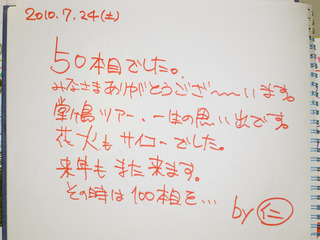 2010.7.24(土)
50本目でした。
みなさまありがとうござい〜〜います。
堂ヶ島ツアー、一生の思い出です。
花火もサイコーでした。
来年もまた来ます。
その時は100本目を…
by 仁